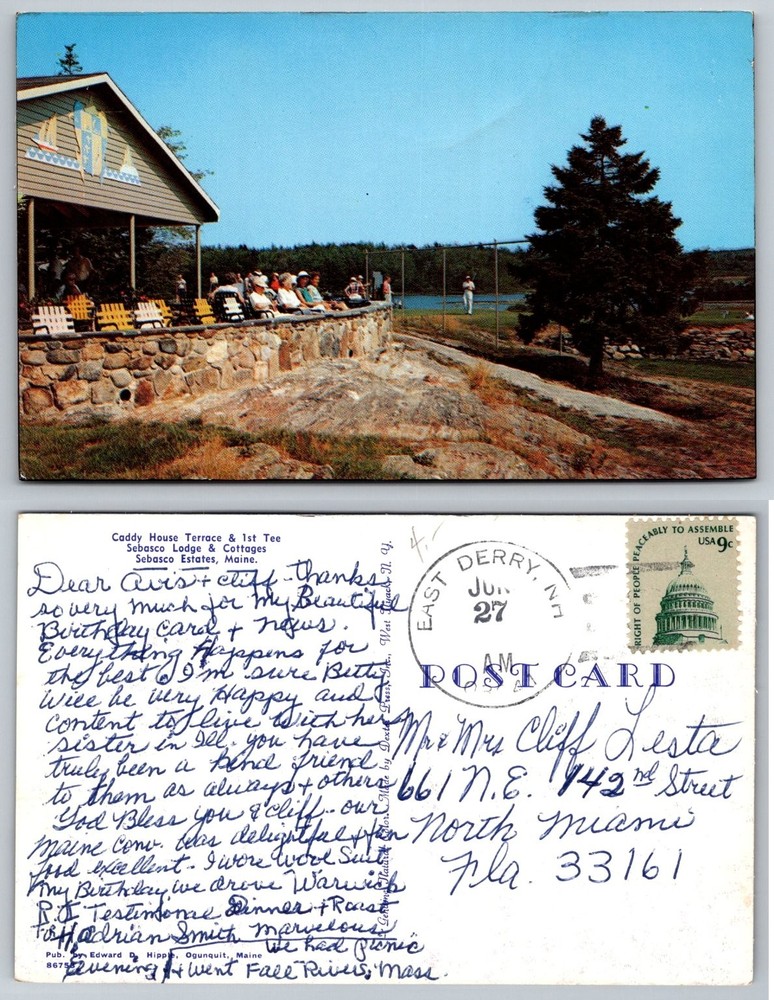 Caddy House Terrace & 1st Tee
Sebasco Lodge & Cottages
Sebasco Estates, Maine.
Dear Avis + Cliff - thanks
so very much for my Beautiful
Birthday Card + news.
Everything Happens for
the best & I'm sure Betty
will be very Happy and
content to live with her
sister in Ill. you have
truly been a kind friend
to them as always + others
God Bless you & Cliff - our
Maine Conv. was delightful + fun
food excellent - I wore wool Suit
my Birthday we drove Warwick
R.I. Testimonial Dinner + Roast
for Hadrian Smith marvelous
we had picnic
Evening + went Fall River, Mass.
Pub. by Edward D. Hipple, Ogunquit, Maine
Made by Dexter Press, Inc., West Nyack, N. Y.
EAST DERRY, NH
JUN
27
AM
RIGHT OF PEOPLE PEACEABLY TO ASSEMBLE
USA 9c
POST CARD
Mr & Mrs Cliff Lesta
661 N.E. 142nd Street
North Miami
Fla. 33161